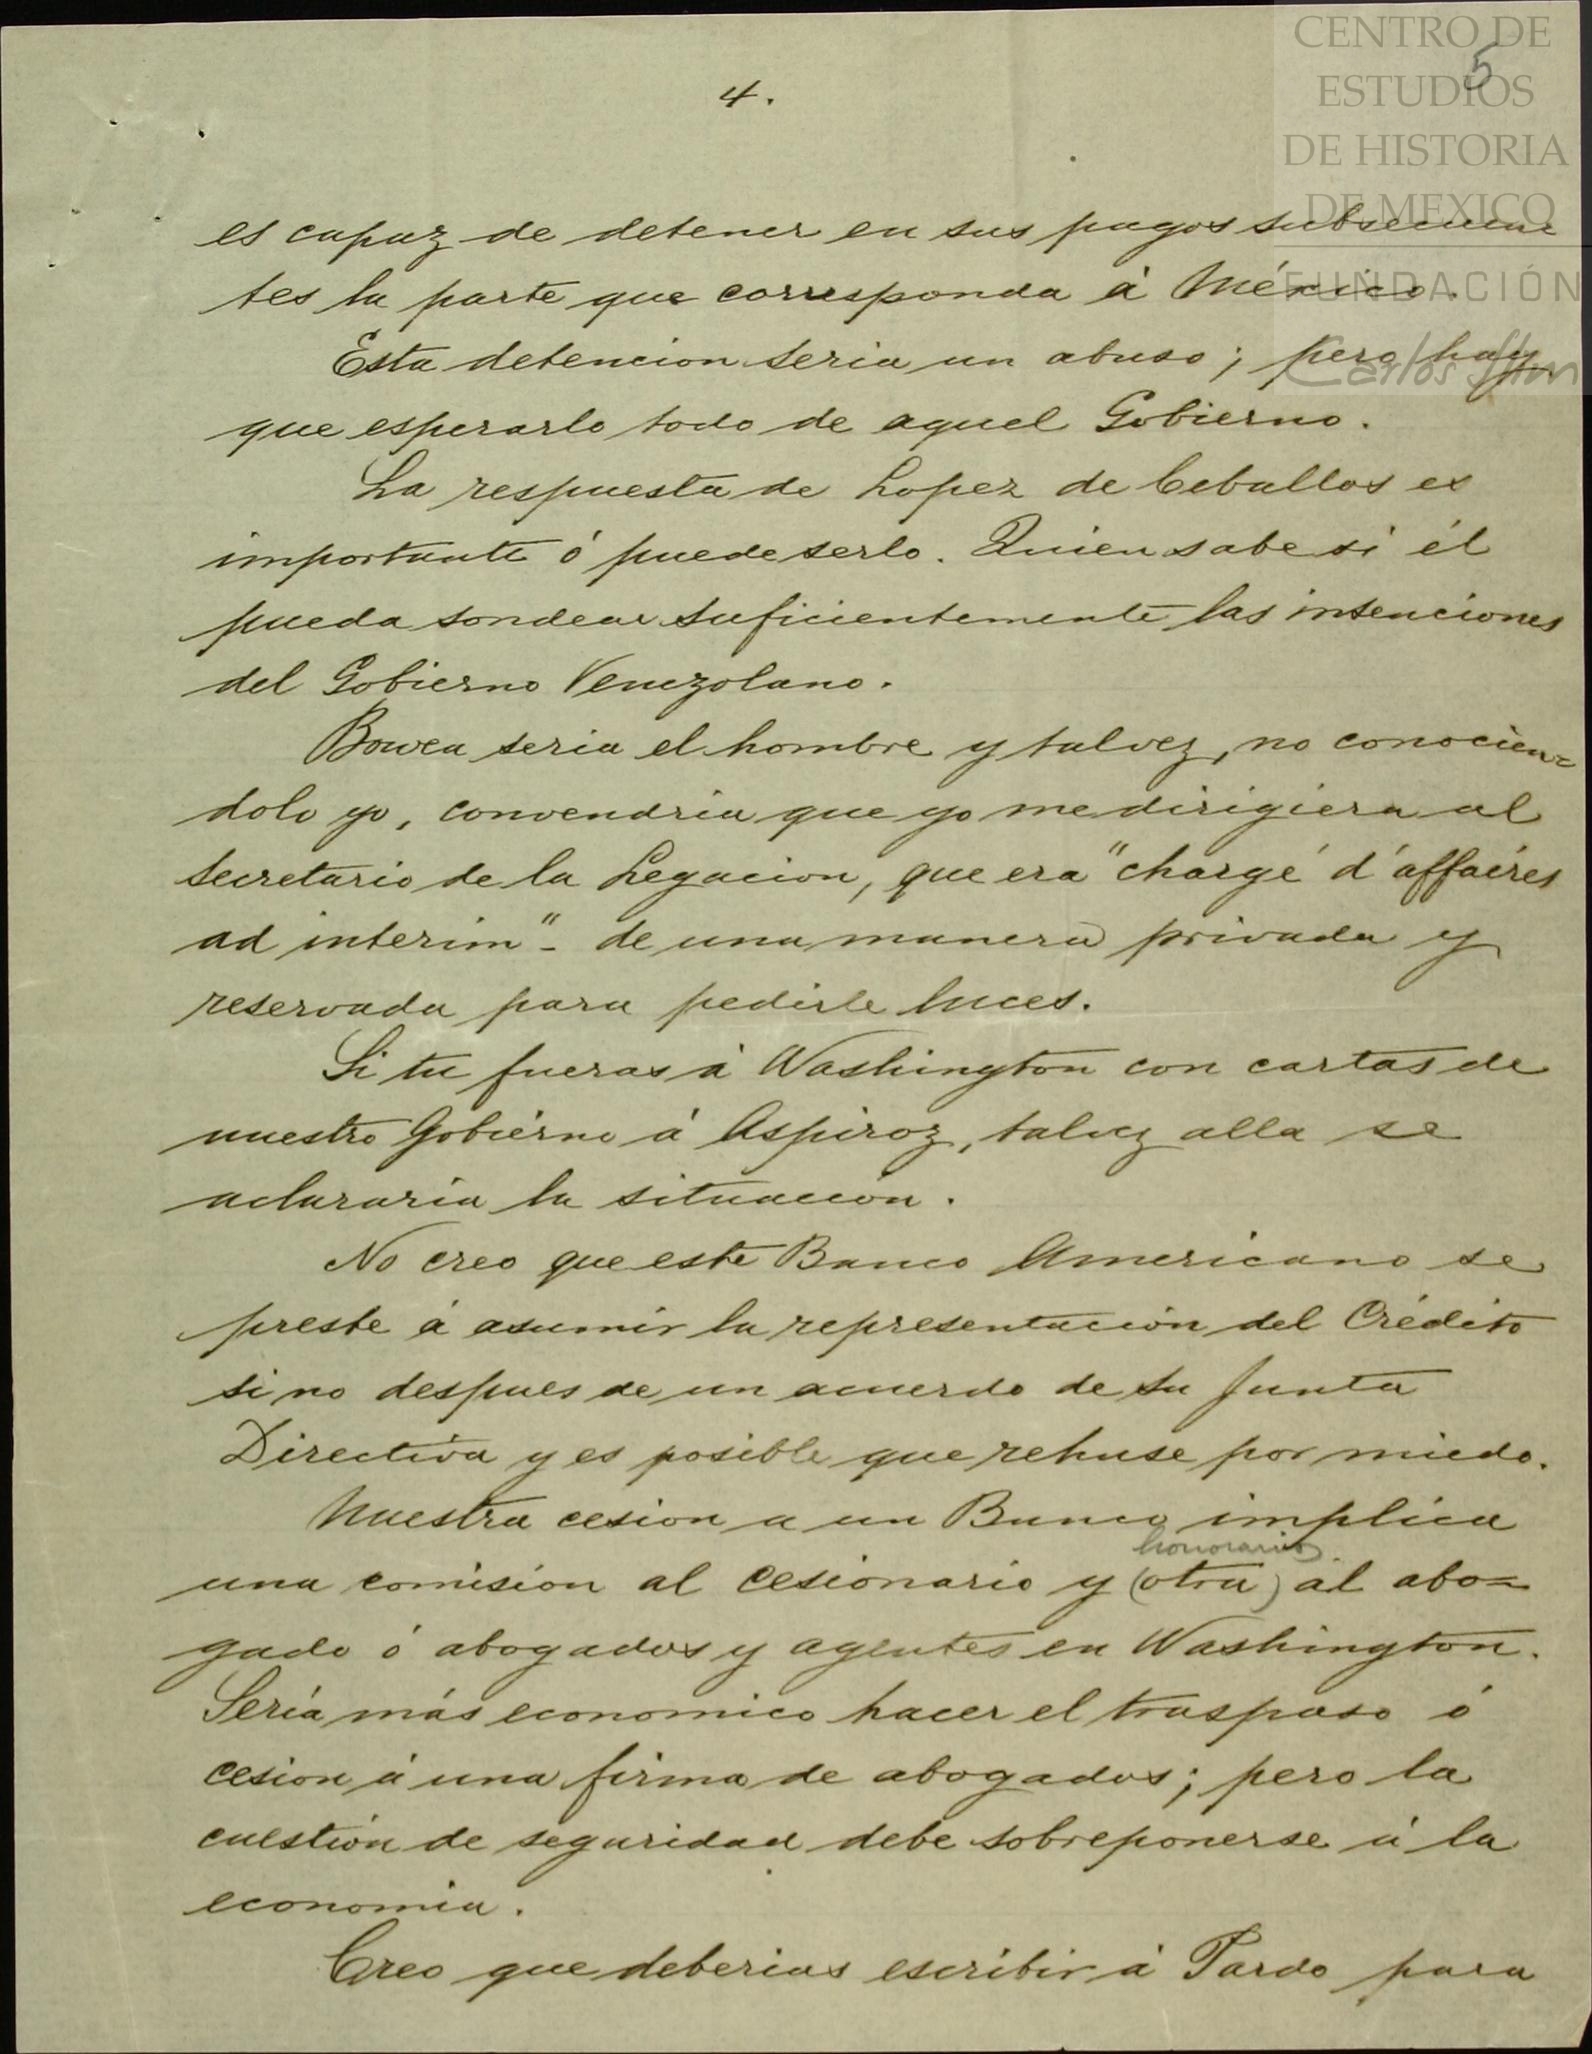 CENTRO DE
ESTUDIOS
DE HISTORIA
DE MEXICO
FUNDACIÓN
Carlos Slim
5
4.
es capaz de detener en sus pagos subsecuen-
tes la parte que corresponda á México.
Esta detencion seria un abuso; pero hay
que esperarlo todo de aquel Gobierno.
La respuesta de Lopez de Ceballos es
importante ó puede serlo. Quien sabe si él
pueda sondear suficientemente las intenciones
del Gobierno Venezolano.
Bowen seria el hombre y talvez, no conocien-
dolo yo, convendria que yo me dirigiera al
Secretario de la Legacion, que era "chargé d'affaires
ad interim" - de una manera privada y
reservada para pedirle luces.
Si tu fueras á Washington con cartas de
nuestro Gobierno á Aspiroz, talvez alla se
aclararia la situación.
No creo que este Banco Americano se
preste á asumir la representación del Crédito
si no despues de un acuerdo de su Junta
Directiva y es posible que rehuse por miedo.
Nuestra cesion a un Banco implica
honorarios
una comisión al cesionario y (otra) al abo=
gado ó abogados y agentes en Washington.
Sería más economico hacer el traspaso ó
cesion á una firma de abogados; pero la
cuestión de seguridad debe sobreponerse á la
economia.
Creo que deberias escribir á Pardo para